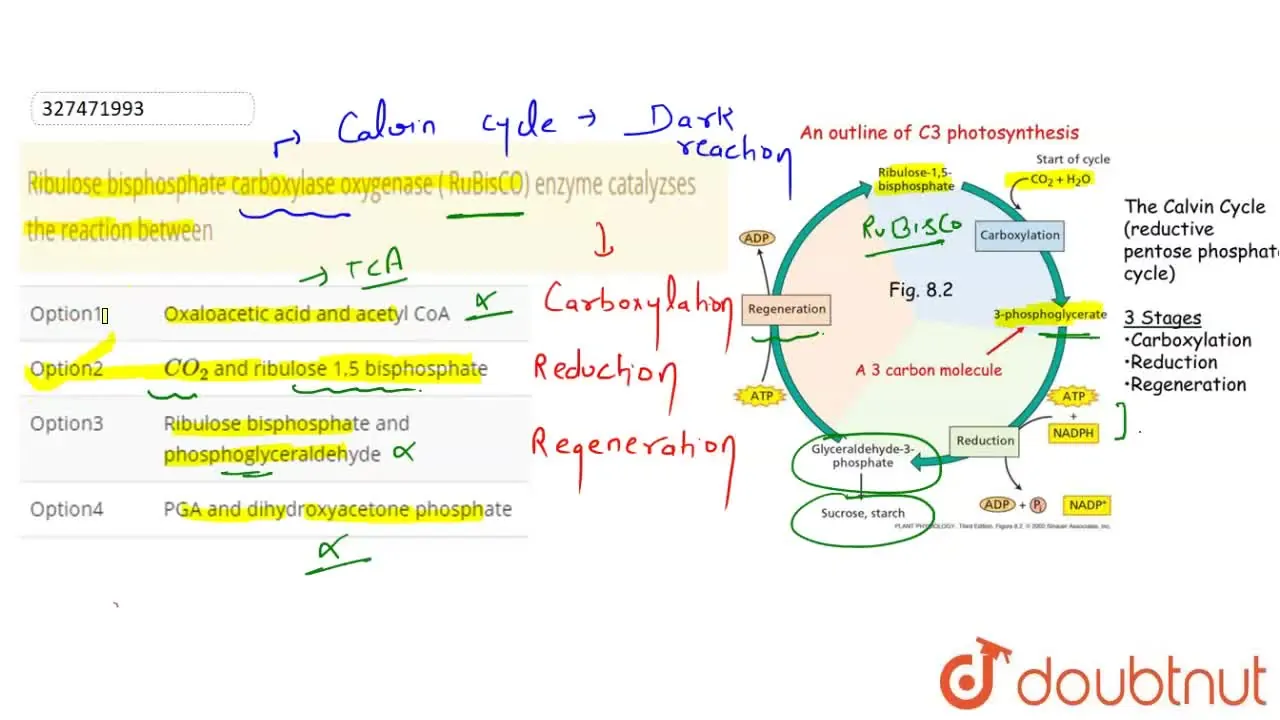 327471993
Calvin cycle → Dark
reaction
Ribulose bisphosphate carboxylase oxygenase ( RuBisCO) enzyme catalyzses
the reaction between
→ TCA
Option1 Oxaloacetic acid and acetyl CoA
Option2 CO₂ and ribulose 1,5 bisphosphate
Option3 Ribulose bisphosphate and
phosphoglyceraldehyde
Option4 PGA and dihydroxyacetone phosphate
Carboxylation
Reduction
Regeneration
An outline of C3 photosynthesis
Start of cycle
Ribulose-1,5-
bisphosphate
CO₂ + H₂O
RuBisCo
Carboxylation
ADP
Fig. 8.2
Regeneration
3-phosphoglycerate
A 3 carbon molecule
ATP
ATP
+
NADPH
Reduction
Glyceraldehyde-3-
phosphate
ADP + Pᵢ NADP⁺
Sucrose, starch
PLANT PHYSIOLOGY, Third Edition, Figure 8.2 © 2002 Sinauer Associates, Inc.
The Calvin Cycle
(reductive
pentose phosphate
cycle)
3 Stages
•Carboxylation
•Reduction
•Regeneration
doubtnut